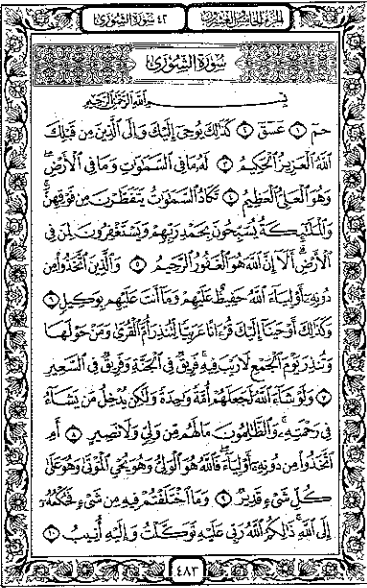 الجزء الخامس والعشرون ٤٢ سورة الشورى
سورة الشورى
بسم الله الرحمن الرحيم
حم ١ عسق ٢ كذلك يوحي إليك وإلى الذين من قبلك
الله العزيز الحكيم ٣ له ما في السموات وما في الأرض
وهو العلي العظيم ٤ تكاد السموات يتفطرن من فوقهن
والملئكة يسبحون بحمد ربهم ويستغفرون لمن في
الأرض ألا إن الله هو الغفور الرحيم ٥ والذين اتخذوا من
دونه أولياء الله حفيظ عليهم وما أنت عليهم بوكيل ٦
وكذلك أوحينا إليك قرءانا عربيا لتنذر أم القرى ومن حولها
وتنذر يوم الجمع لا ريب فيه فريق في الجنة وفريق في السعير
٧ ولو شاء الله لجعلهم أمة وحدة ولكن يدخل من يشاء
في رحمته والظلمون ما لهم من ولي ولا نصير ٨ أم
اتخذوا من دونه أولياء فالله هو الولي وهو يحي الموتى وهو على
كل شيء قدير ٩ وما اختلفتم فيه من شيء فحكمه
إلى الله ذلكم الله ربي عليه توكلت وإليه أنيب ١٠
٤٨٣